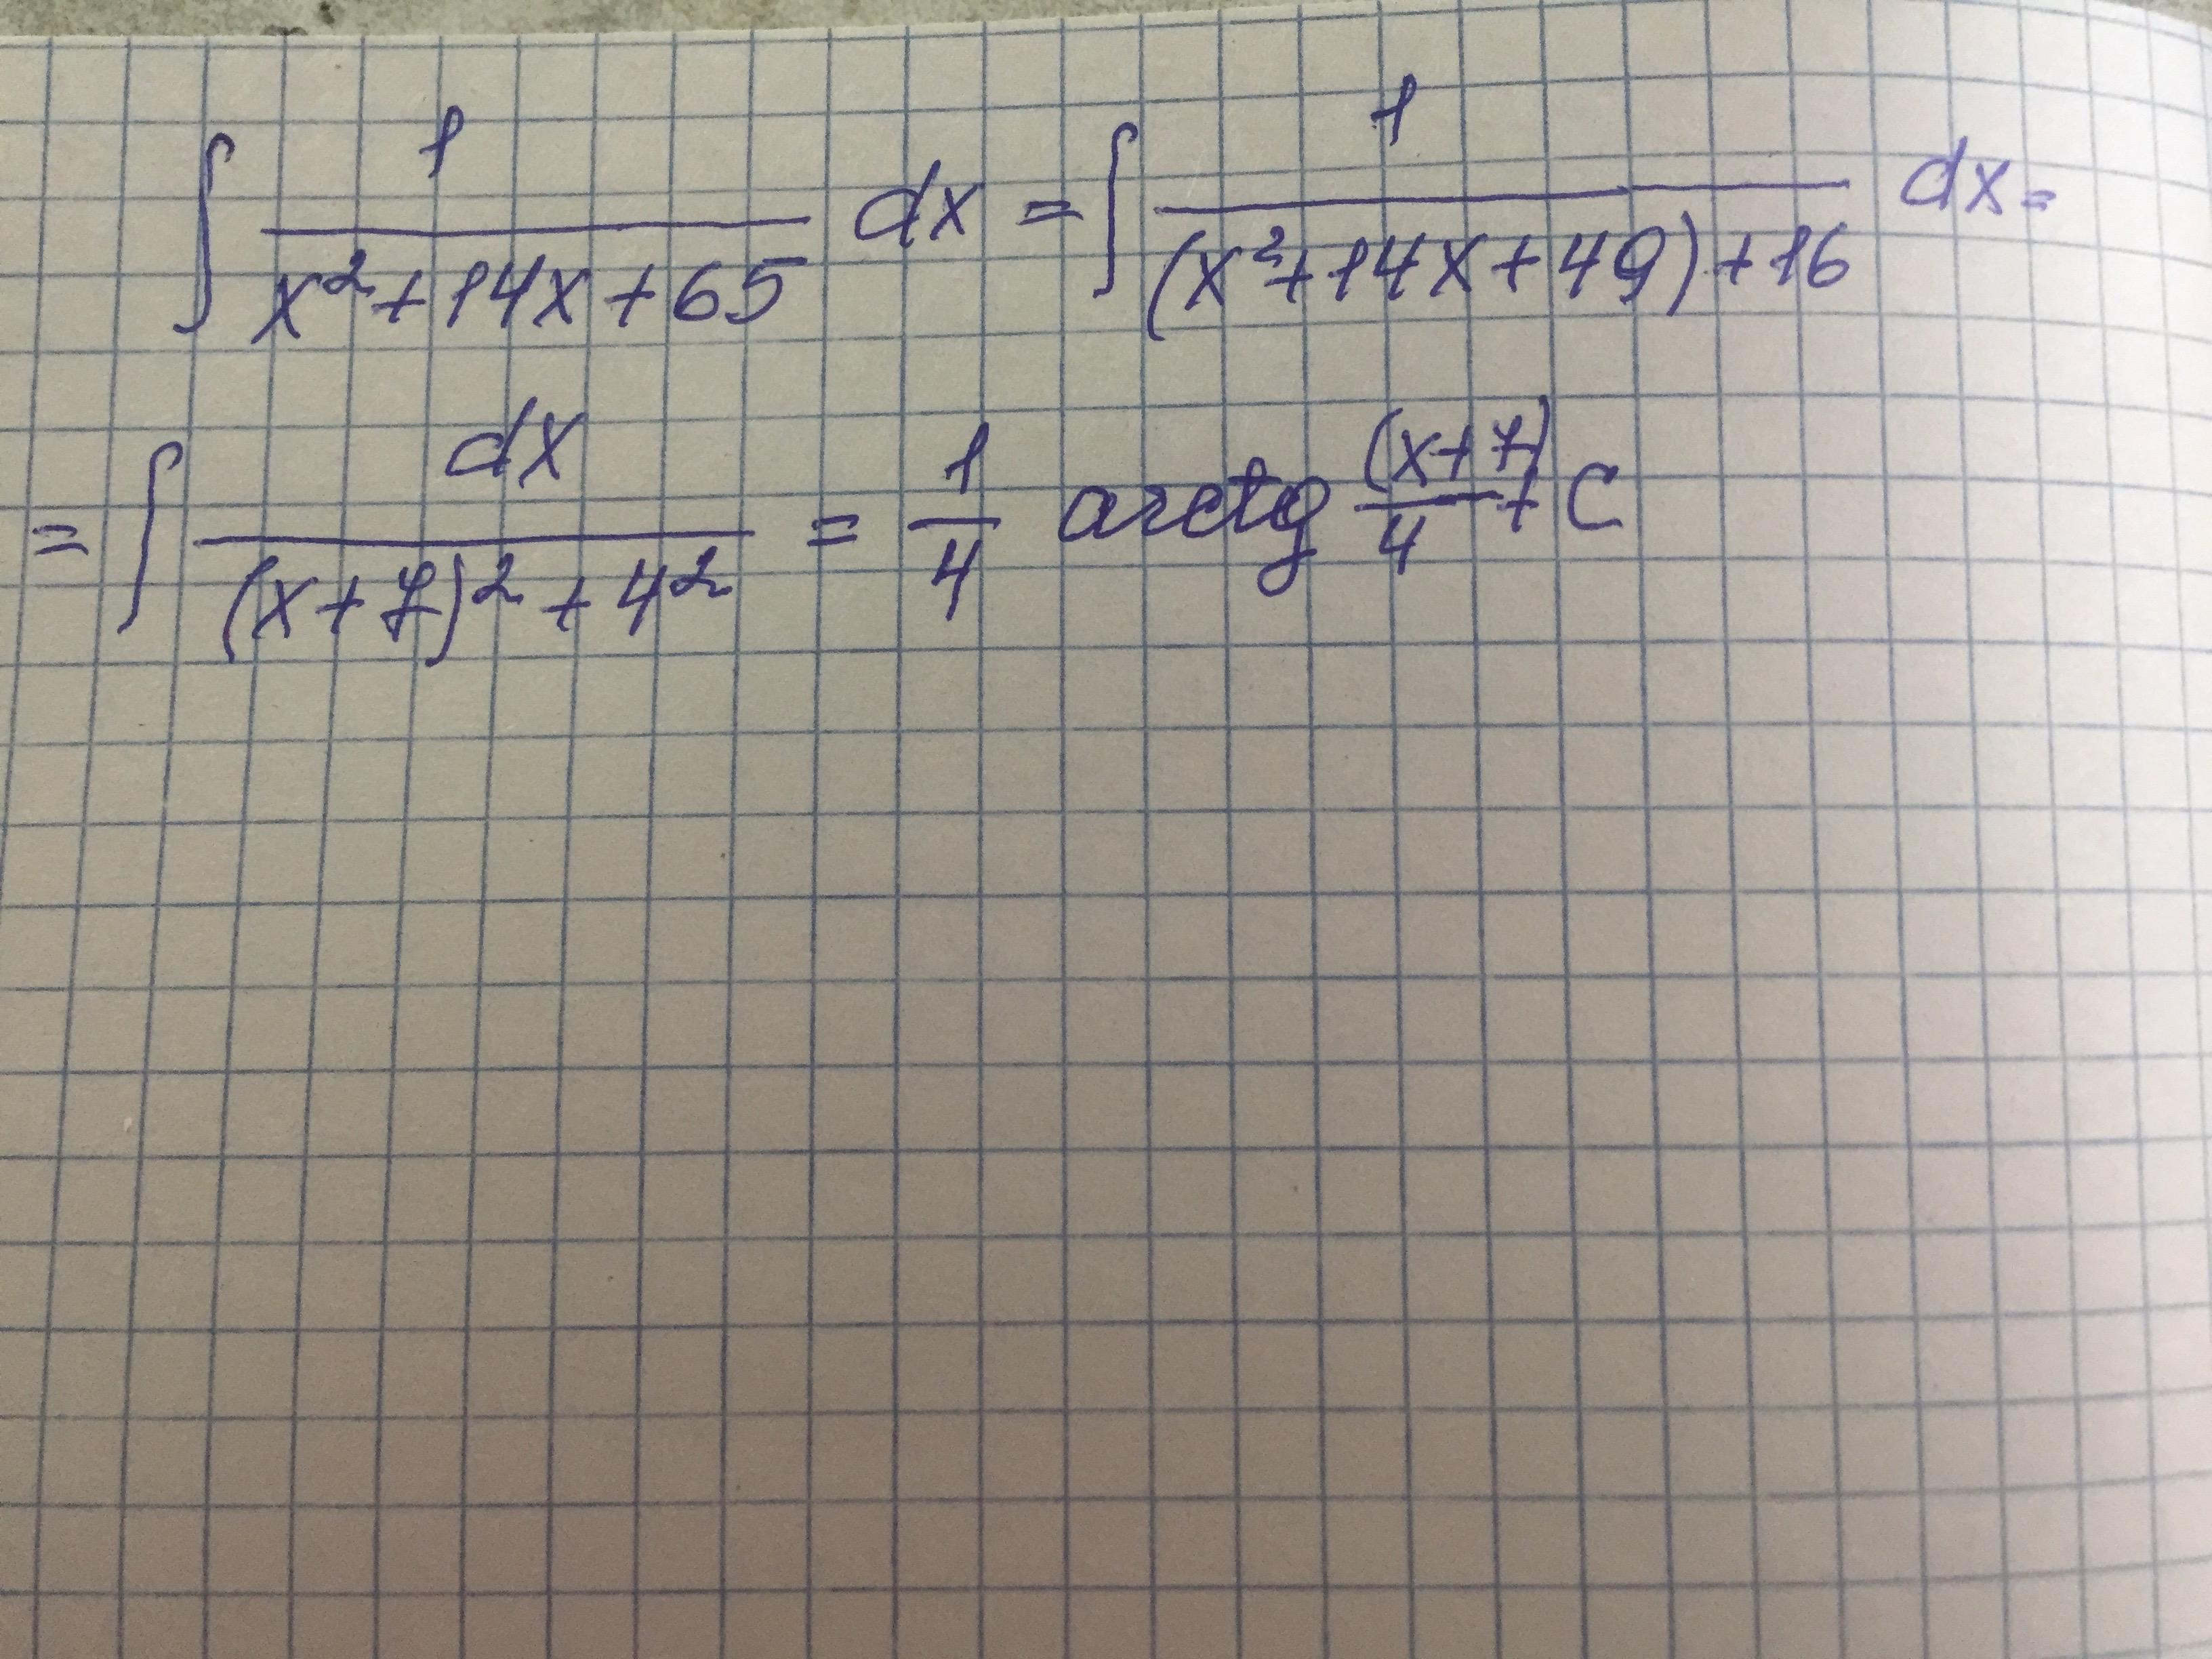 ∫ 1/(x²+14x+65) dx = ∫ 1/((x²+14x+49)+16) dx =
= ∫ dx/((x+7)²+4²) = 1/4 arctg (x+7)/4 + C